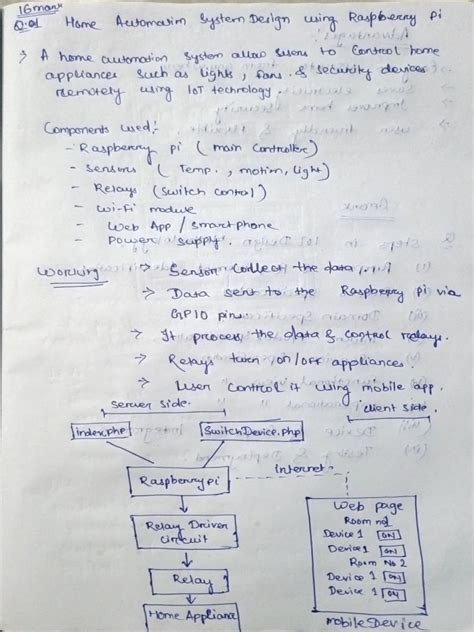 16 mark
Q.01 Home Automatim System Design using Raspberry Pi
→ A home automation system allow users to control home
appliances such as lights, fans & security devices
remotely using IoT technology.
Components used:-
- Raspberry pi (main controller)
- Sensors (Temp., motion, light)
- Relays (switch control)
- Wi-Fi module
- Web App / smartphone
- Power supply.
Working → Sensor collect the data
→ Data sent to the Raspberry pi via
GPIO pins.
→ It process the data & control relays.
→ Relays turn on/OFF appliances.
→ User control it using mobile app.
server side. client side.
Index.php SwitchDevice.php
Internet
Raspberry pi
Web page
Room no1
Relay Driver circuit
Device 1 ON
Device 1 ON
Room No 2
Relay
Device 1 ON
Device 1 ON
Home Appliance
mobile Device